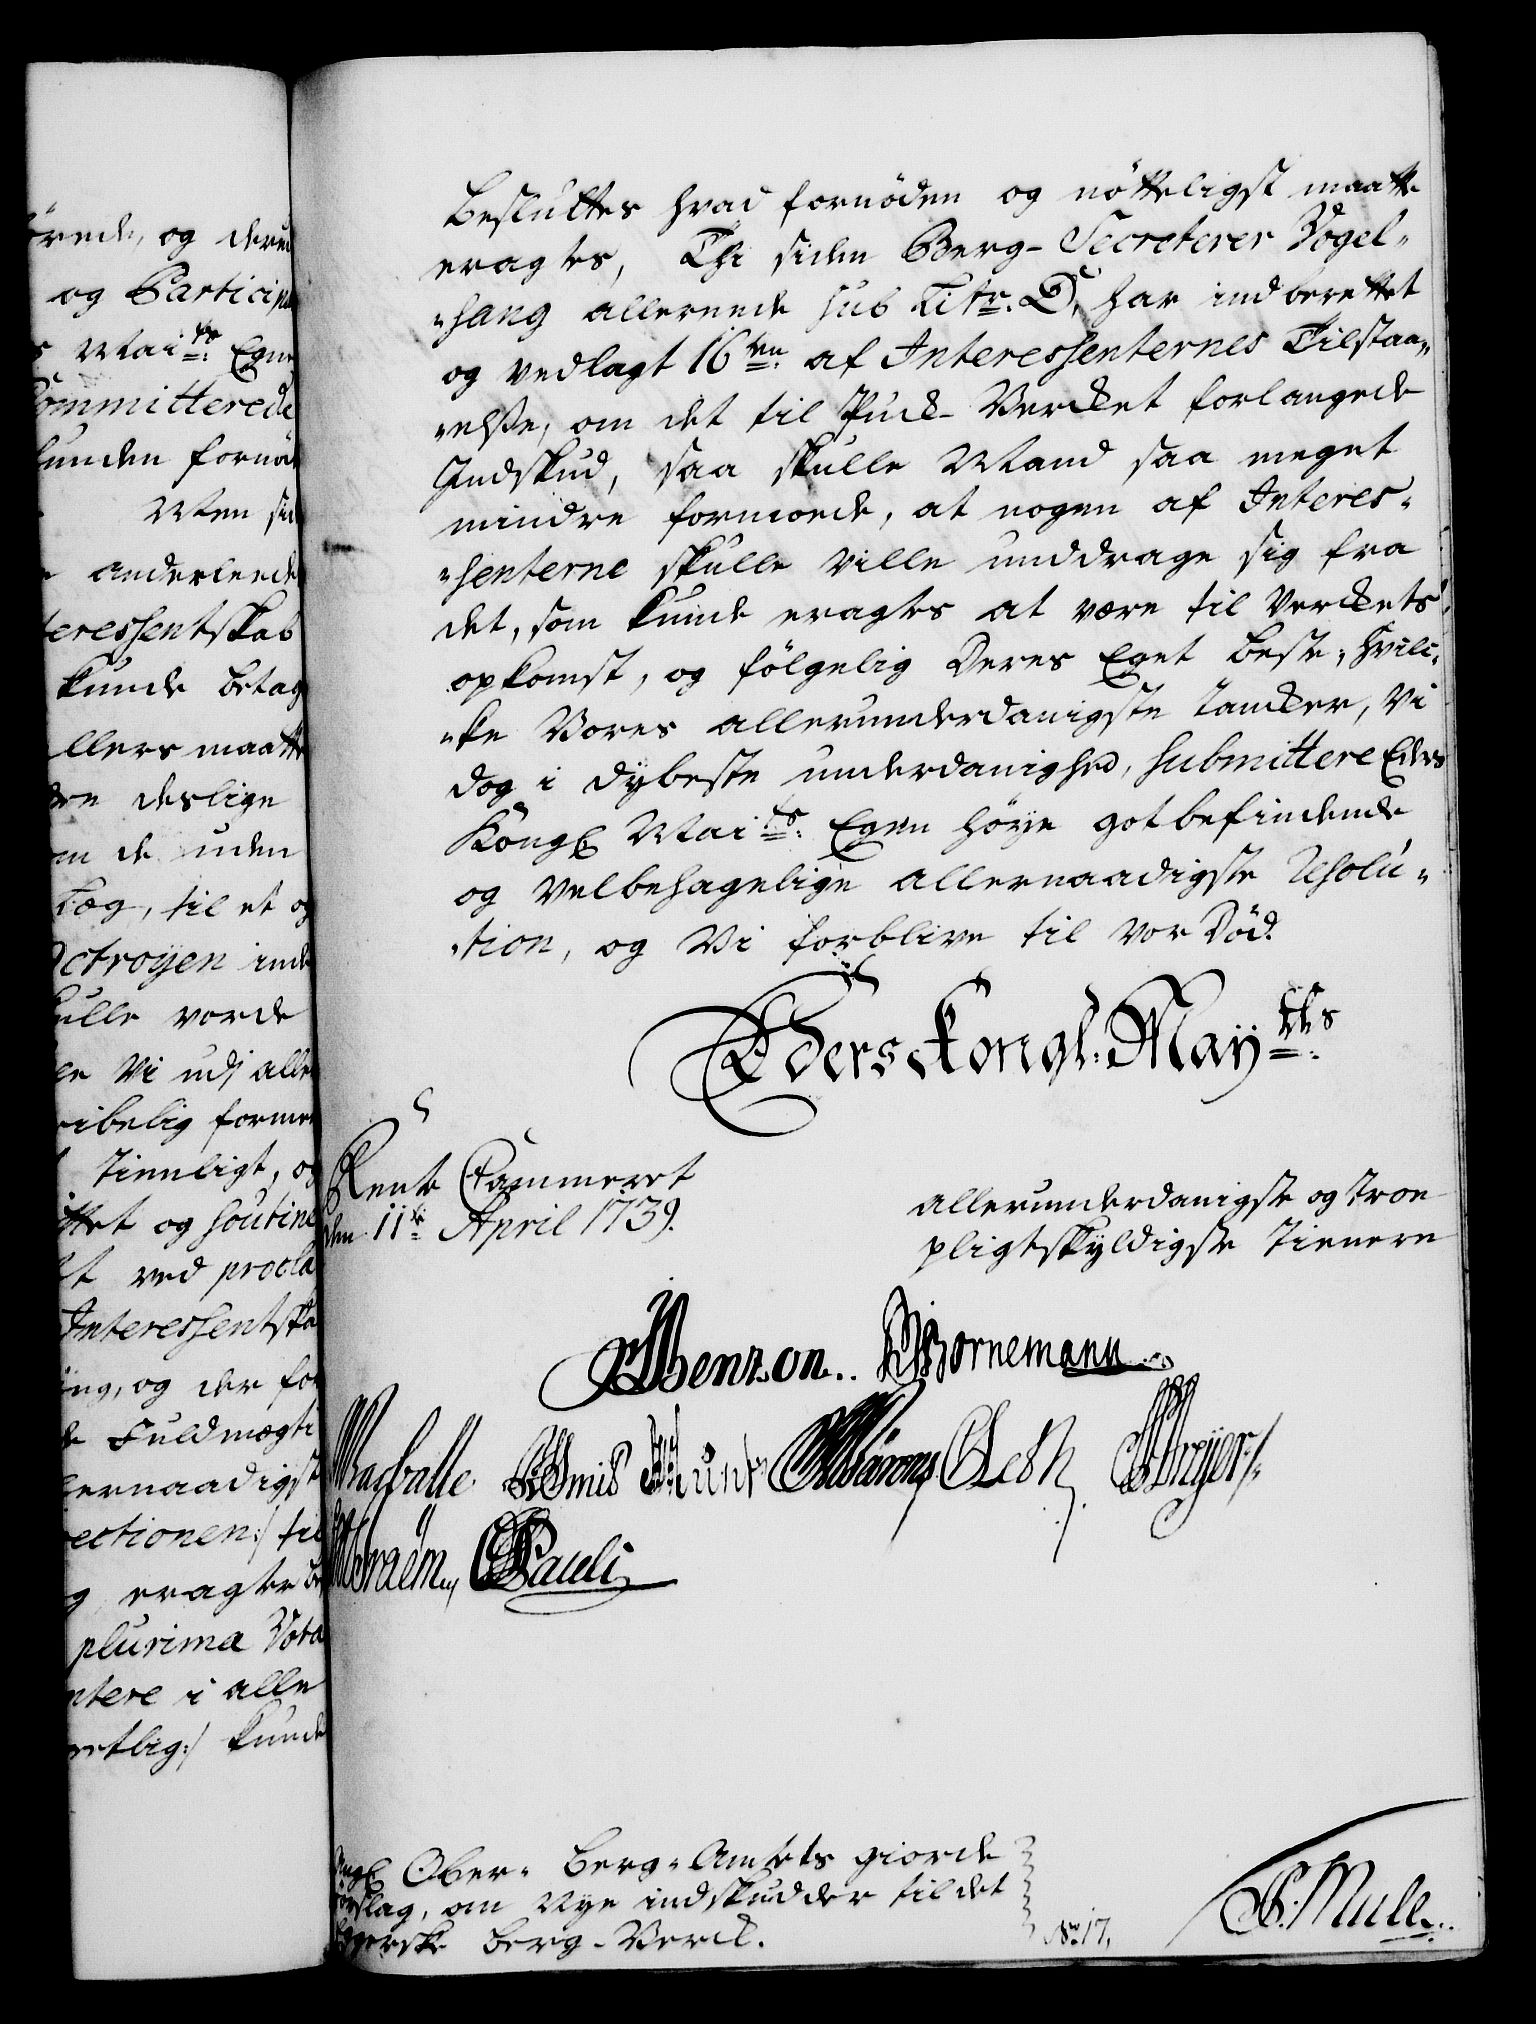 rede, og derud
og Particip
Mai.ts Egne
Committerede
unden fornød
Men sid
anderleede
teressentskab
kunde betag
llers maatte
dre deslige
m de uden
læg, til et og
Octroyen inde
ulle vorde
Vi udj aller
ribelig forme
tienligt, og
ttet og soutine
t ved procla
Interessentska
ing, og der for
Fuldmægti
lernaadigst
ectionen:/ til
g eragter be
plurima Vota
ntere i alle
retlig:/ kunde
Besluttes hvad fornøden og nøtteligst maatte
eragtes, Thi siden Berg-Secreterer Vogel„
„sang allerede sub Litr. D, har indberettet
og vedlagt 16ten af Interessenternes Tilstaa„
„else, om det til Puck-Verket forlangede
Indskud, saa skulle Mand saa meget
mindre formoede, at nogen af Interes„
„senterne skulle ville unddrage sig fra
det, som kunde eragtes at være til Verckets
opkomst, og følgelig Deres Eget beste, hvilc„
„ke Vores allerunderdanigste tancker, Vi
dog i dybeste underdanighed, submittere Eders
Kongl Mai.ts Egen høye gotbefindende
og velbehagelige allernaadigste Resolu„
„tion, og Vi forblive til vor Død.
Eders Kongl. May.tts
Rente Cammeret
den 11te April 1739.
allerunderdanigste og troe
pligtskyldigste Tienere
Benzon. Bornemann
Braem, Pauli
Ober- Berg-Amtets giorde
Forslag, om Nye indskudder til det
Berg-Verck.
No. 17.
Mule